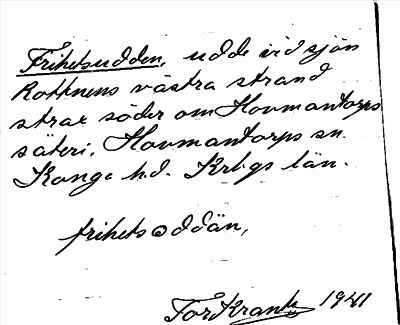 Frihetsudden, udde vid sjön
Rottnens västra strand
strax söder om Hovmantorps
säteri, Hovmantorps sn.
Konga hd. Krbgs län.
frihetsoddän,
Tor Krantz 1941